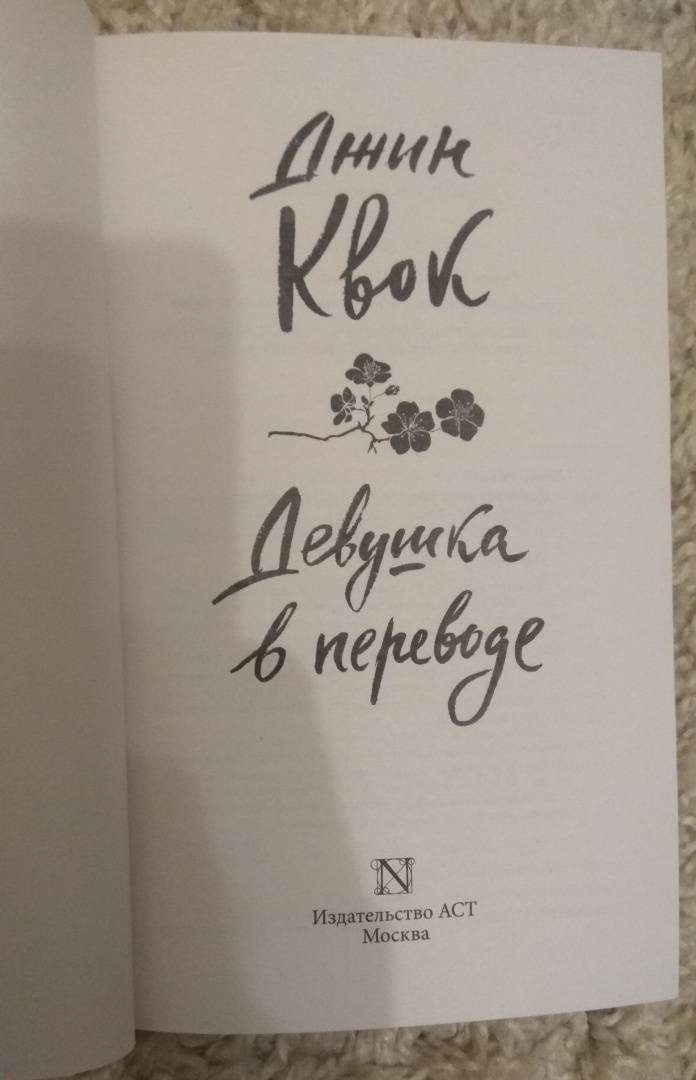 Джин
Квок
Девушка
в переводе
N
Издательство АСТ
Москва